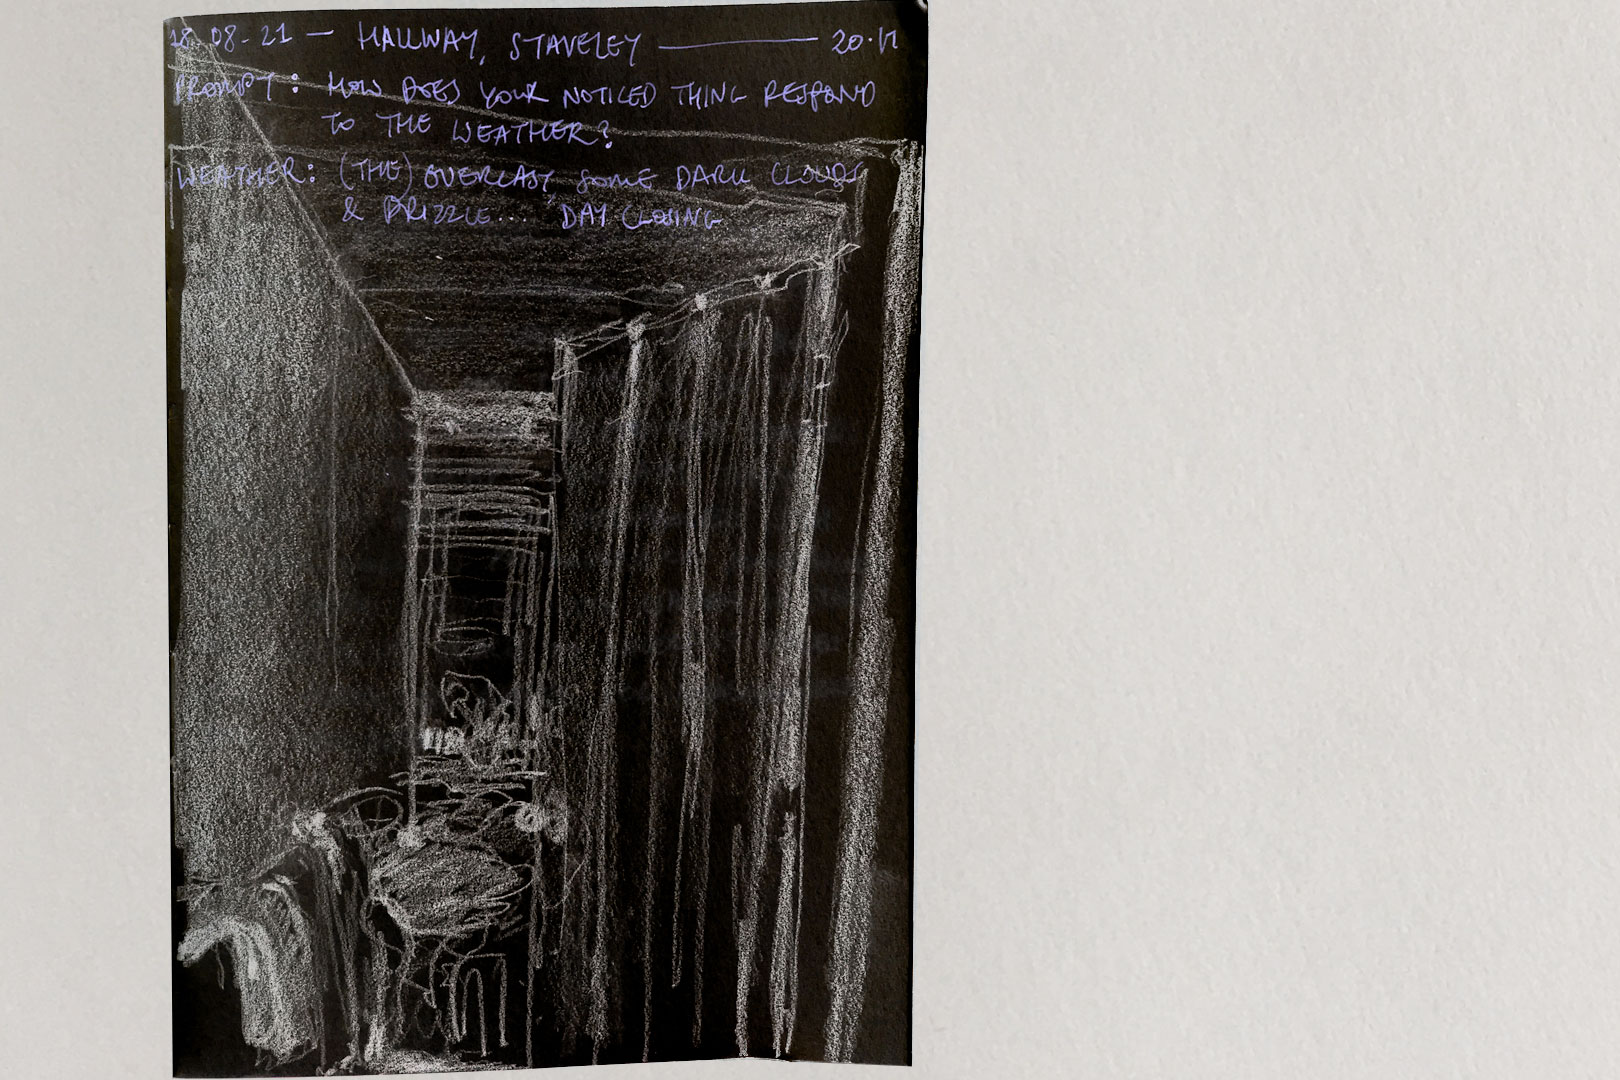 18-08-21 — HALLWAY, STAVELEY — 20:17
PROMPT: HOW DOES YOUR NOTICED THING RESPOND
TO THE WEATHER?
WEATHER: (THE) OVERCAST SOME DARK CLOUDS
& DRIZZLE.... DAY CLOSING